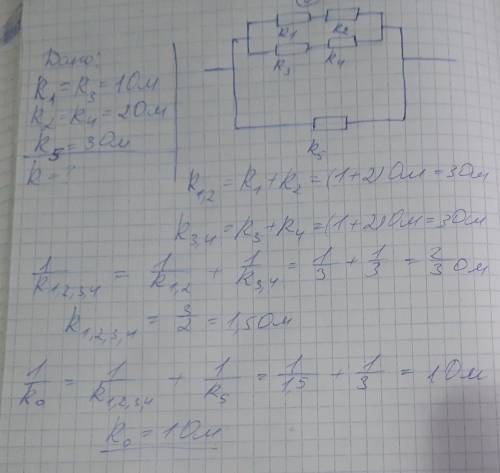 Дано:
R₁ = R₃ = 1 Ом
R₂ = R₄ = 2 Ом
R₅ = 3 Ом
R = ?
R₁ R₂
R₃ R₄
R₅
R₁,₂ = R₁ + R₂ = (1+2) Ом = 3 Ом
R₃,₄ = R₃ + R₄ = (1+2) Ом = 3 Ом
1/R₁,₂,₃,₄ = 1/R₁,₂ + 1/R₃,₄ = 1/3 + 1/3 = 2/3 Ом
R₁,₂,₃,₄ = 3/2 = 1,5 Ом
1/R₀ = 1/R₁,₂,₃,₄ + 1/R₅ = 1/1,5 + 1/3 = 1 Ом
R₀ = 1 Ом